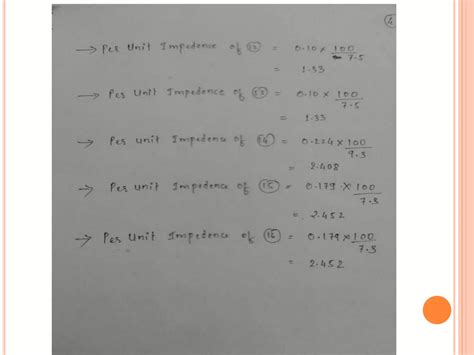 → Per Unit Impedence of 12 = 0.10 × 100/7.5
= 1.33
→ Per Unit Impedence of 13 = 0.10 × 100/7.5
= 1.33
→ Per unit Impedence of 14 = 0.224 × 100/9.3
= 2.408
→ Per unit Impedence of 15 = 0.179 × 100/7.3
= 2.452
→ Per Unit Impedence of 16 = 0.179 × 100/7.3
= 2.452